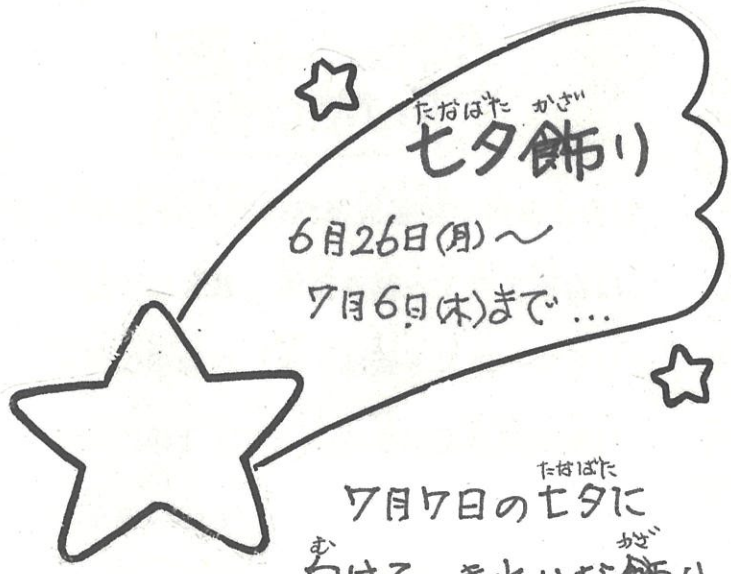 たなばた かざ
七夕飾り
6月26日(月)〜
7月6日(木)まで...
たなばた
7月7日の七夕に
む かざ
向けて、きれいな飾り